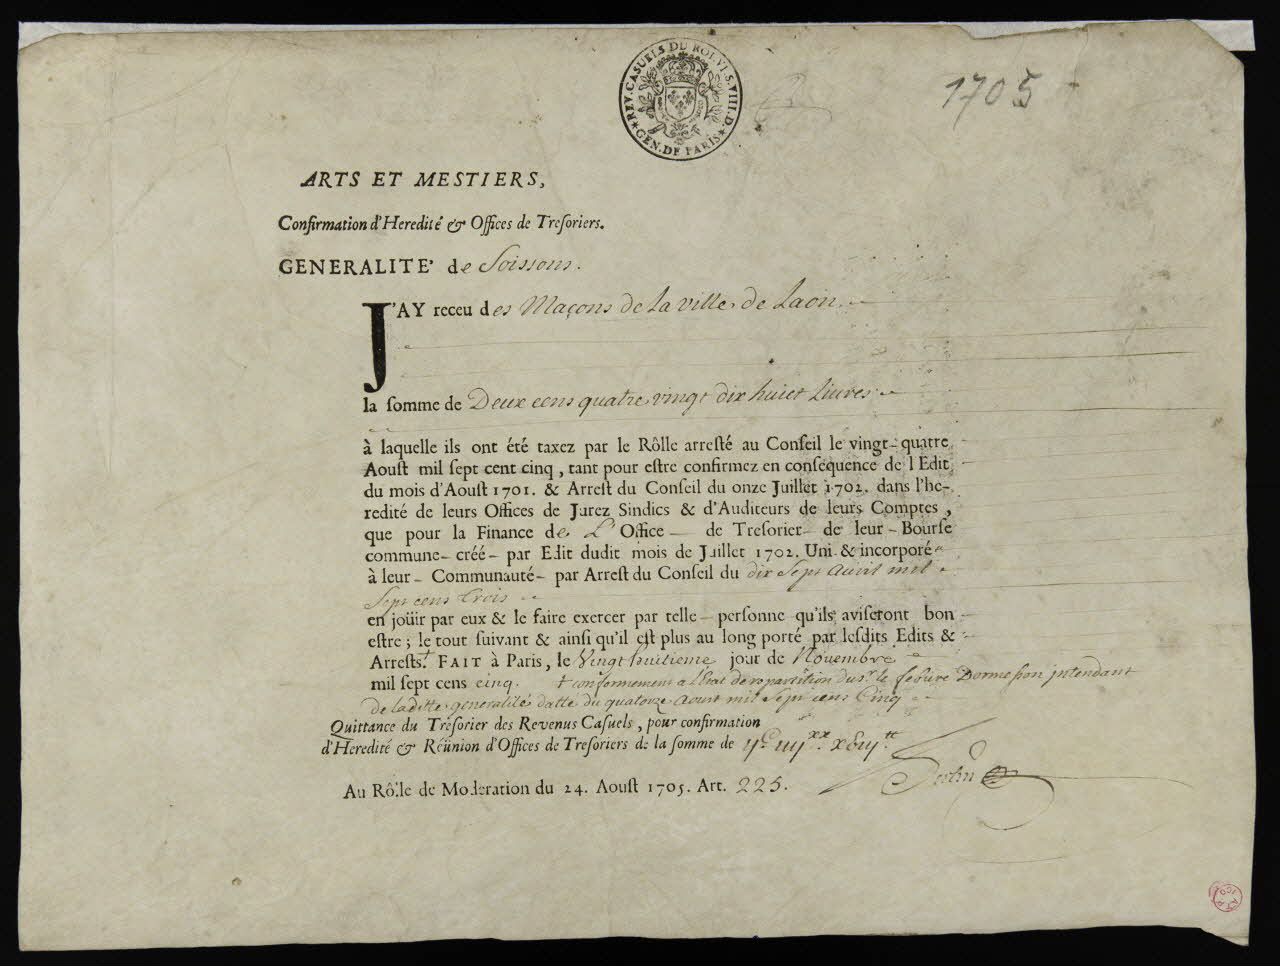 REV. CASUELS DU ROI. VI. S. VIII. D.
GEN. DE PARIS
1705
ARTS ET MESTIERS,
Confirmation d'Heredité & Offices de Tresoriers.
GENERALITE' de Soissons.
J'AY receu des Maçons de la ville de Laon
la somme de Deux cens quatre vingt dix huict Livres
à laquelle ils ont été taxez par le Rôlle arresté au Conseil le vingt-quatre
Aoust mil sept cent cinq, tant pour estre confirmez en consequence de l'Edit
du mois d'Aoust 1701. & Arrest du Conseil du onze Juillet 1702. dans l'he-
redité de leurs Offices de Jurez Sindics & d'Auditeurs de leurs Comptes,
que pour la Finance de L'Office de Tresorier de leur Bourse
commune créé par Edit dudit mois de Juillet 1702. Uni & incorporé
à leur Communauté par Arrest du Conseil du dix Sept Avril mil
Sept cens trois
en joüir par eux & le faire exercer par telle personne qu'ils aviseront bon
estre; le tout suivant & ainsi qu'il est plus au long porté par lesdits Edits &
Arrests.† FAIT à Paris, le Vingt huitieme jour de Novembre
mil sept cens cinq. † conformement a l'Etat de repartition du Sr. le febure Dormesson intendant
de laditte generalité datté du quatorze Aoust mil Sept cens Cinq
Quittance du Tresorier des Revenus Casuels, pour confirmation
d'Heredité & Réünion d'Offices de Tresoriers de la somme de ijc iiijxx xviijtt
Au Rôlle de Moderation du 24. Aoust 1705. Art. 225.